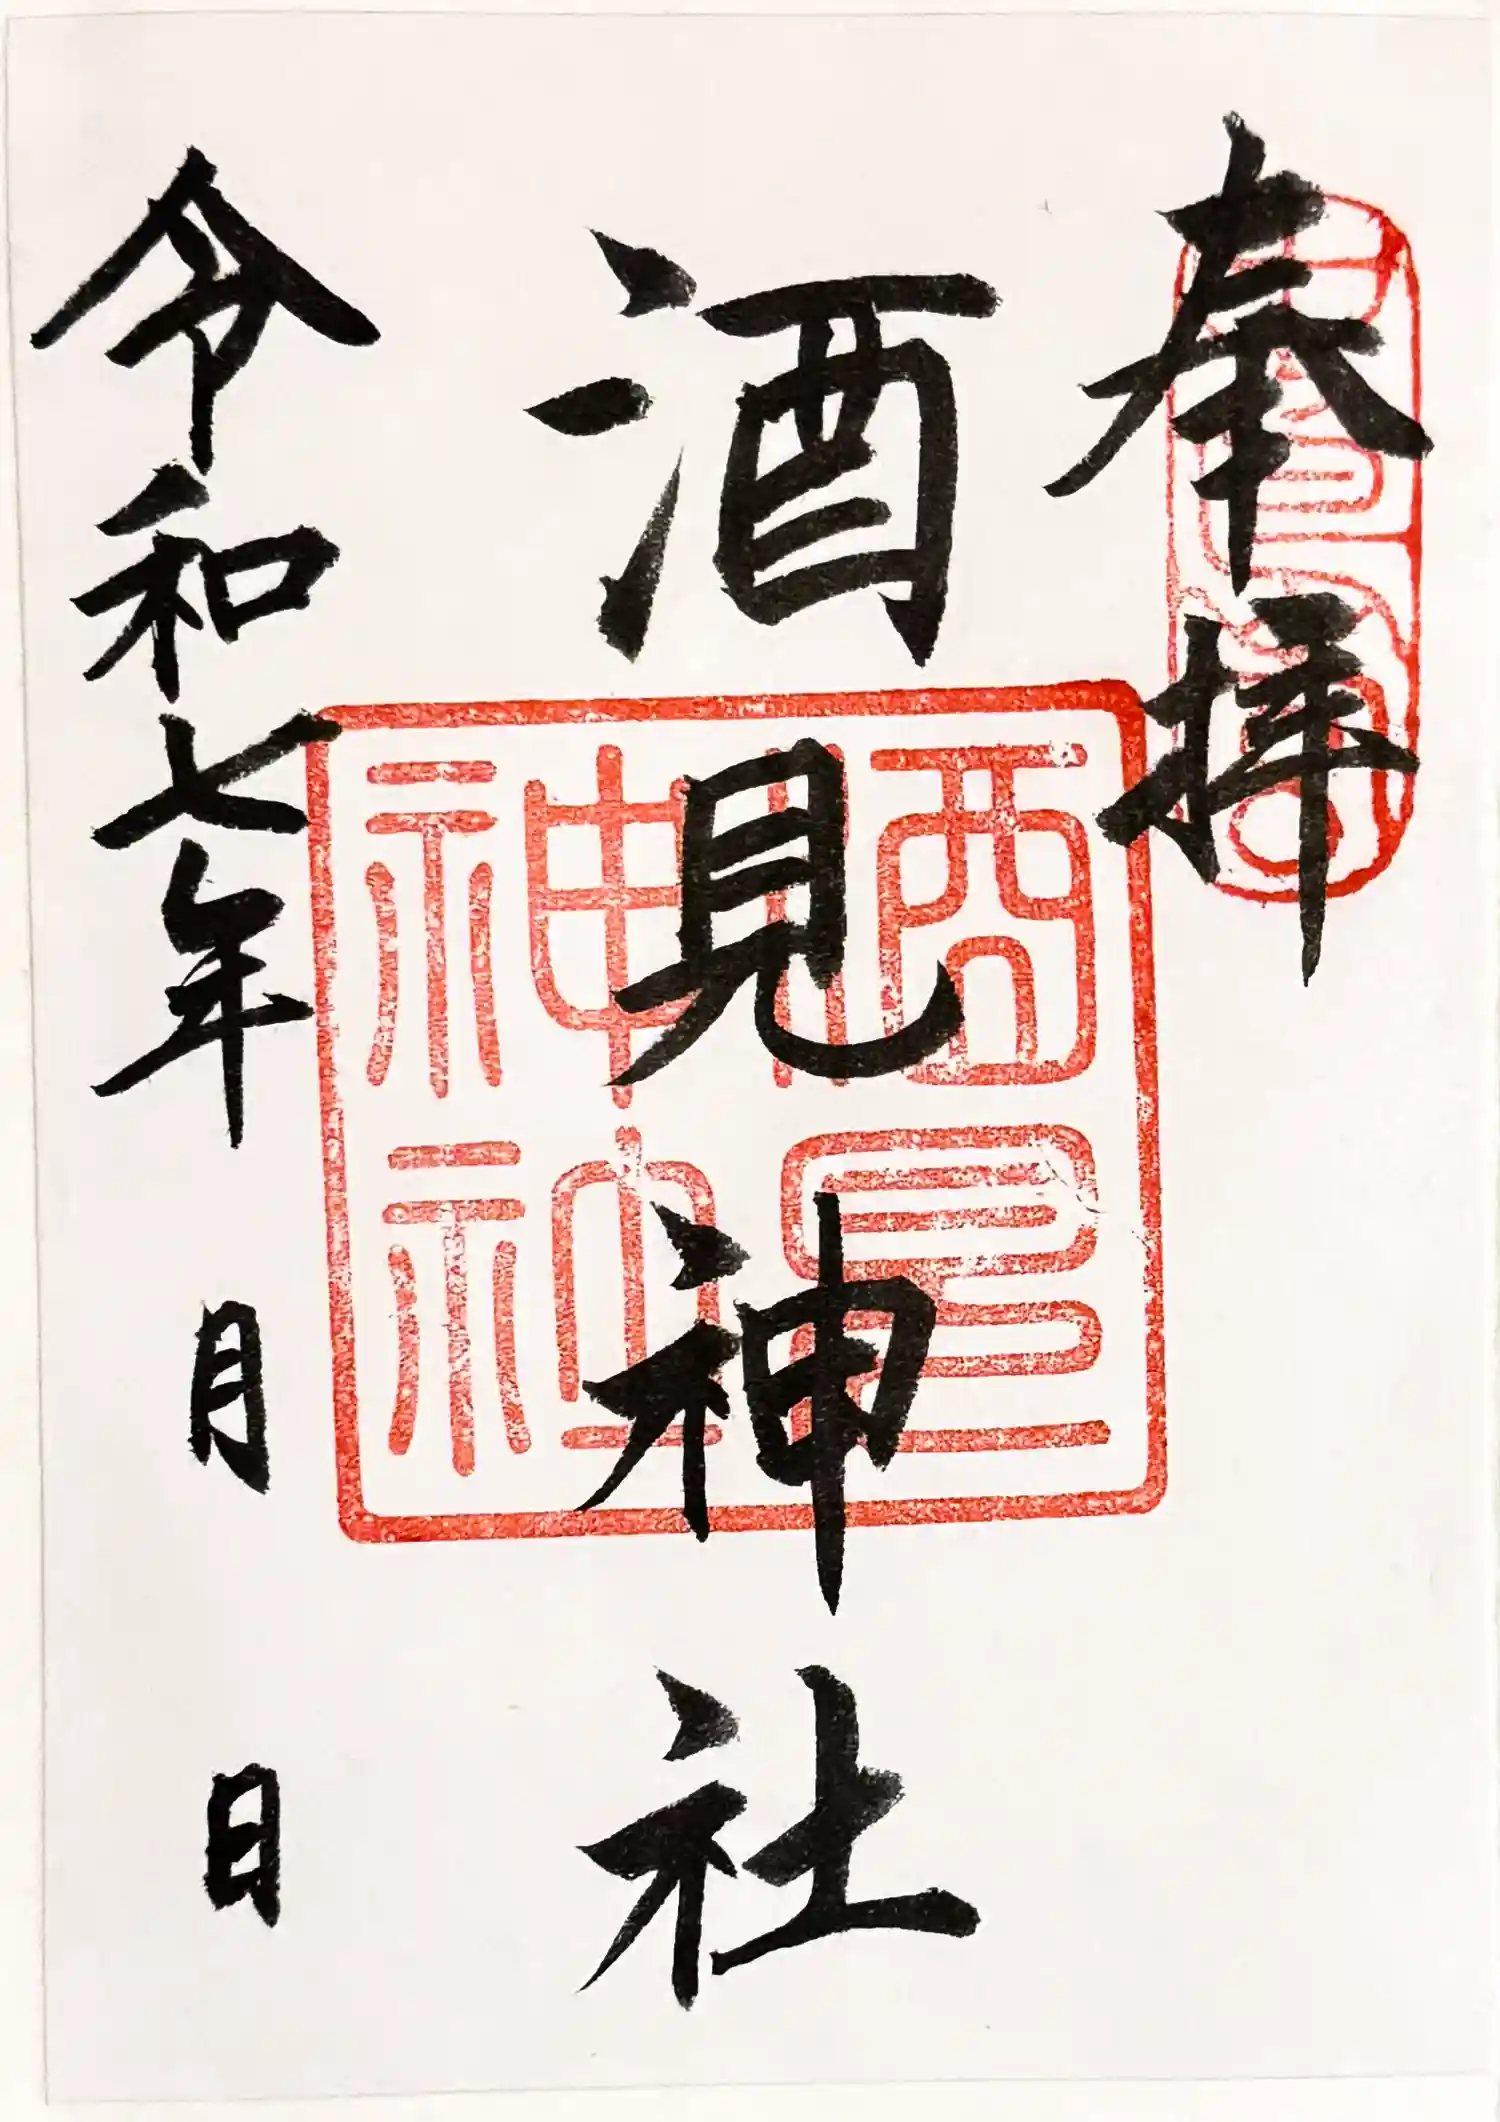 奉拝
酒見神社
酒見
神社
令和七年 月 日